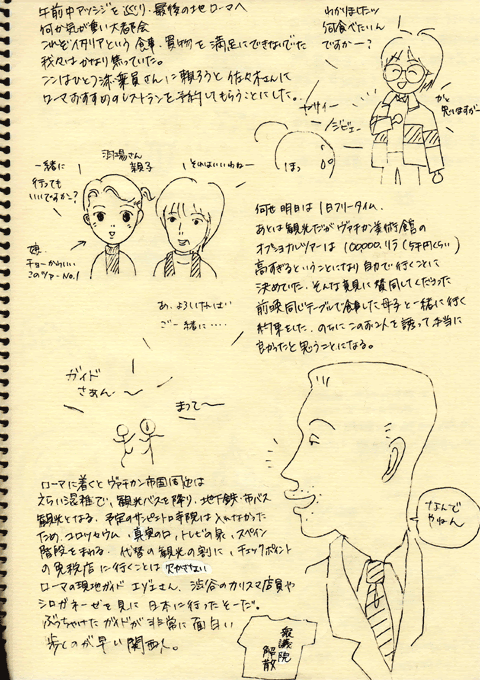 午前中アッシジを巡り、最後の地ローマへ
何か気が重い大都会
これぞイタリアという食事、買物を満足にできないでいた
我々はかなり焦っていた。
ここはひとつ添乗員さんに頼ろうと佐々木さんに
ローマおすすめのレストランを予約してもらうことにした。
わかりましたッ
何食べたいん
ですかー？
ヤサイー
ジビエー
かと
思いますがー
ほっ
一緒に
行っても
いいですか？
親子
それはいいわねー
娘
チョーかわいい
このツアーNo.1
何せ明日は1日フリータイム。
あとは観光だがヴァチカン美術館の
オプショナルツアーは100,000リラ(5千円くらい)
高すぎるということになり自力で行くことに
決めていた。そんな意見に賛同してくださった
前晩同じテーブルで食事した母子と一緒に行く
約束をした。のちにこのお2人を誘って本当に
良かったと思うことになる。
あ、よろしければ
ご一緒に‥‥
ガイド
さぁん〜
まって〜
ローマに着くとヴァチカン市国周辺は
えらい混雑で、観光バスを降り、地下鉄・市バス
観光となる。予定のサンピエトロ寺院は入れなかった
ため、コロッセウム、真実の口、トレビの泉、スペイン
階段をまわる。代替の観光の割に、チェックポイント
の免税店に行くことは欠かさない
ローマの現地ガイド エヅェさん、渋谷のカリスマ店員や
シロガネーゼを見に日本に行ったそーだ。
ぶっちゃけたガイドが非常に面白い
歩くのが早い関西人。
なんで
やねん
衆議院
解散